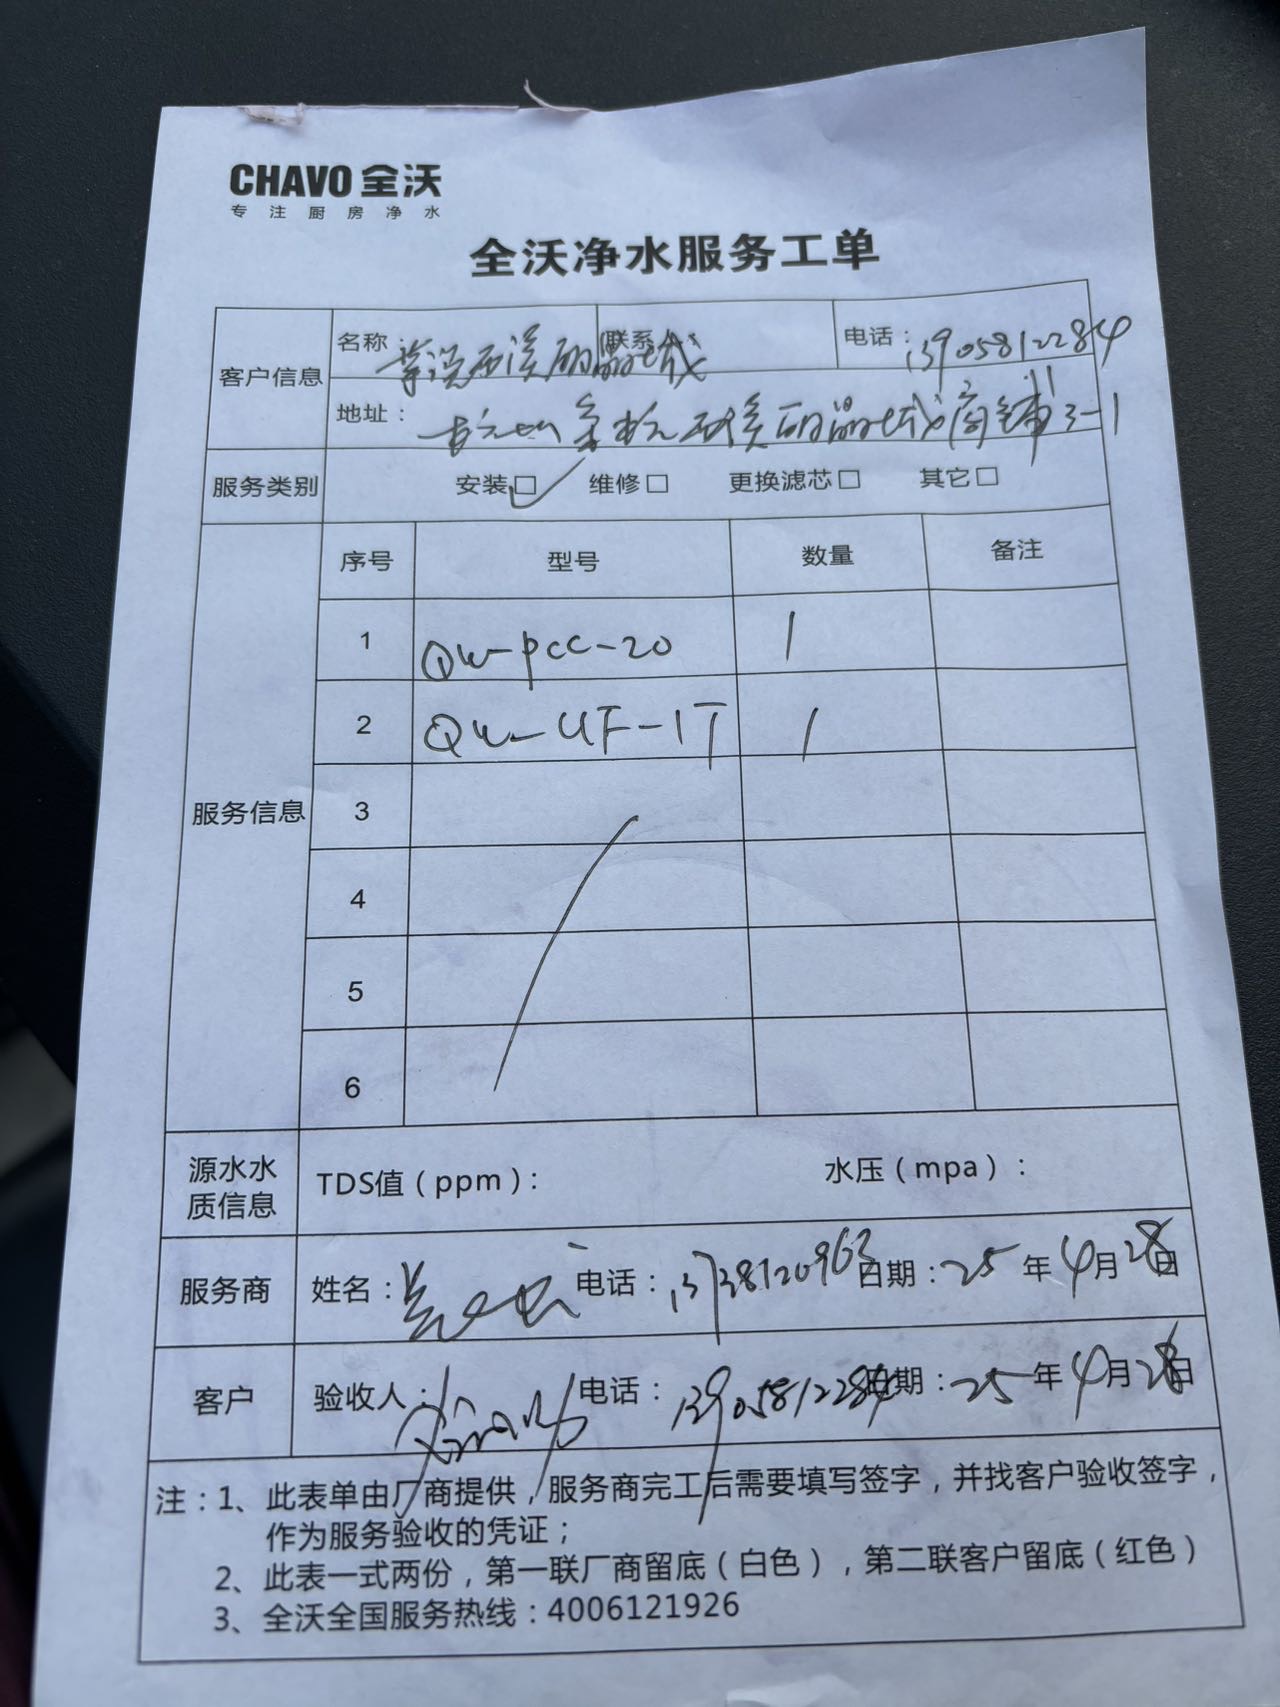 CHAVO 全沃
专注厨房净水
全沃净水服务工单
客户信息
名称： 西溪丽晶城 联系 电话：13905812284
地址：杭州余杭西溪丽晶城商铺3-1
服务类别 安装□✓ 维修□ 更换滤芯□ 其它□
服务信息
序号 型号 数量 备注
1 QW-PCC-20 1
2 QW-UF-1T 1
3
4
5
6
源水水质信息 TDS值（ppm）： 水压（mpa）：
服务商 姓名： 电话：13738120963 日期：25年4月28日
客户 验收人： 电话：13905812284 日期：25年4月28日
注：1、此表单由厂商提供，服务商完工后需要填写签字，并找客户验收签字，
作为服务验收的凭证；
2、此表一式两份，第一联厂商留底（白色），第二联客户留底（红色）
3、全沃全国服务热线：4006121926